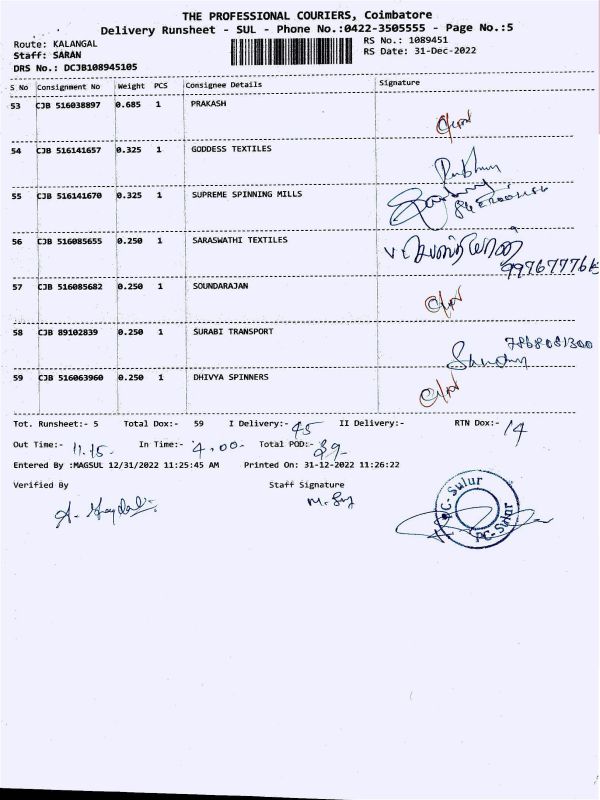 THE PROFESSIONAL COURIERS, Coimbatore
Delivery Runsheet - SUL - Phone No.:0422-3505555 - Page No.:5
Route: KALANGAL RS No.: 1089451
Staff: SARAN RS Date: 31-Dec-2022
DRS No.: DCJB108945105
S No Consignment No Weight PCS Consignee Details Signature
53 CJB 516038897 0.685 1 PRAKASH
54 CJB 516141657 0.325 1 GODDESS TEXTILES
55 CJB 516141670 0.325 1 SUPREME SPINNING MILLS
56 CJB 516085655 0.250 1 SARASWATHI TEXTILES
57 CJB 516085682 0.250 1 SOUNDARAJAN
58 CJB 89102839 0.250 1 SURABI TRANSPORT 7868081300
59 CJB 516063960 0.250 1 DHIVYA SPINNERS
Tot. Runsheet:- 5 Total Dox:- 59 I Delivery:- 45 II Delivery:- RTN Dox:- 14
Out Time:- 11.15- In Time:- 4.00- Total POD:- 39-
Entered By :MAGSUL 12/31/2022 11:25:45 AM Printed On: 31-12-2022 11:26:22
Verified By Staff Signature
PC-Sulur
PC-Sulur